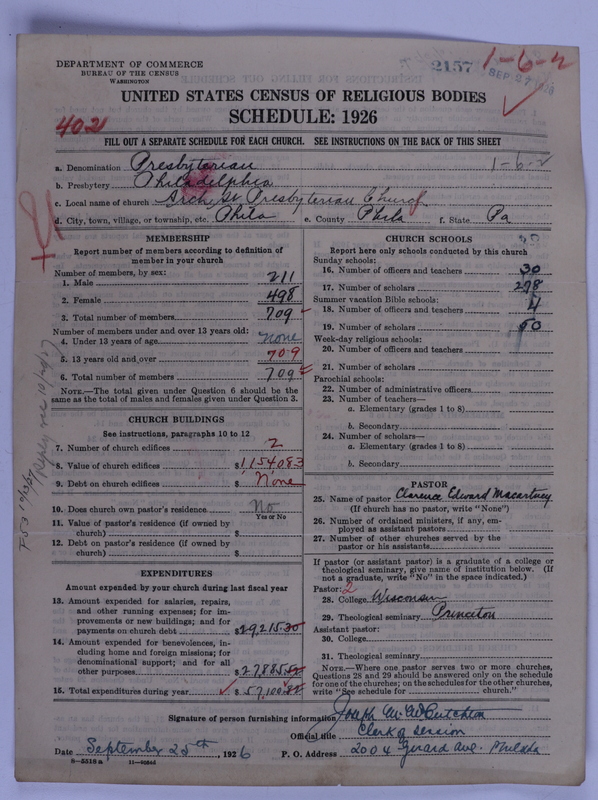 DEPARTMENT OF COMMERCE
BUREAU OF THE CENSUS
WASHINGTON
2157
1-6-2
SEP 27 1926
UNITED STATES CENSUS OF RELIGIOUS BODIES
SCHEDULE: 1926
4021
FILL OUT A SEPARATE SCHEDULE FOR EACH CHURCH. SEE INSTRUCTIONS ON THE BACK OF THIS SHEET
a. Denomination Presbyterian 1-6-2
b. Presbytery Philadelphia
c. Local name of church Arch St Presbyterian Church
d. City, town, village, or township, etc. Phila e. County Phila f. State Pa
MEMBERSHIP
Report number of members according to definition of member in your church
Number of members, by sex:
1. Male 211
2. Female 498
3. Total number of members 709
Number of members under and over 13 years old:
4. Under 13 years of age none
5. 13 years old and over 709
6. Total number of members 709
NOTE.—The total given under Question 6 should be the
same as the total of males and females given under Question 3.
CHURCH BUILDINGS
See instructions, paragraphs 10 to 12
7. Number of church edifices 2
8. Value of church edifices $1,154,083
9. Debt on church edifices $ None
10. Does church own pastor's residence No
Yes or No
11. Value of pastor's residence (if owned by
church) $
12. Debt on pastor's residence (if owned by
church) $
EXPENDITURES
Amount expended by your church during last fiscal year
13. Amount expended for salaries, repairs,
and other running expenses; for im-
provements or new buildings; and for
payments on church debt $29,215.30
14. Amount expended for benevolences, in-
cluding home and foreign missions; for
denominational support; and for all
other purposes $27,885.52
15. Total expenditures during year $57,100.82
CHURCH SCHOOLS
Report here only schools conducted by this church
Sunday schools:
16. Number of officers and teachers 30
17. Number of scholars 278
Summer vacation Bible schools:
18. Number of officers and teachers 4
19. Number of scholars 50
Week-day religious schools:
20. Number of officers and teachers
21. Number of scholars
Parochial schools:
22. Number of administrative officers
23. Number of teachers—
a. Elementary (grades 1 to 8)
b. Secondary
24. Number of scholars—
a. Elementary (grades 1 to 8)
b. Secondary
PASTOR
25. Name of pastor Clarence Edward Macartney
(If church has no pastor, write "None")
26. Number of ordained ministers, if any, em-
ployed as assistant pastors
27. Number of other churches served by the
pastor or his assistants
If pastor (or assistant pastor) is a graduate of a college or
theological seminary, give name of institution below. (If
not a graduate, write "No" in the space indicated.)
Pastor: 2
28. College Wisconsin
29. Theological seminary Princeton
Assistant pastor:
30. College
31. Theological seminary
NOTE.—Where one pastor serves two or more churches,
Questions 28 and 29 should be answered only on the schedule
for one of the churches; on the schedules for the other churches,
write "See schedule for church."
Signature of person furnishing information Joseph M. McCutcheon
Official title Clerk of Session
Date September 25th, 1926 P. O. Address 2004 Girard Ave. Philada
8-5518a 11-